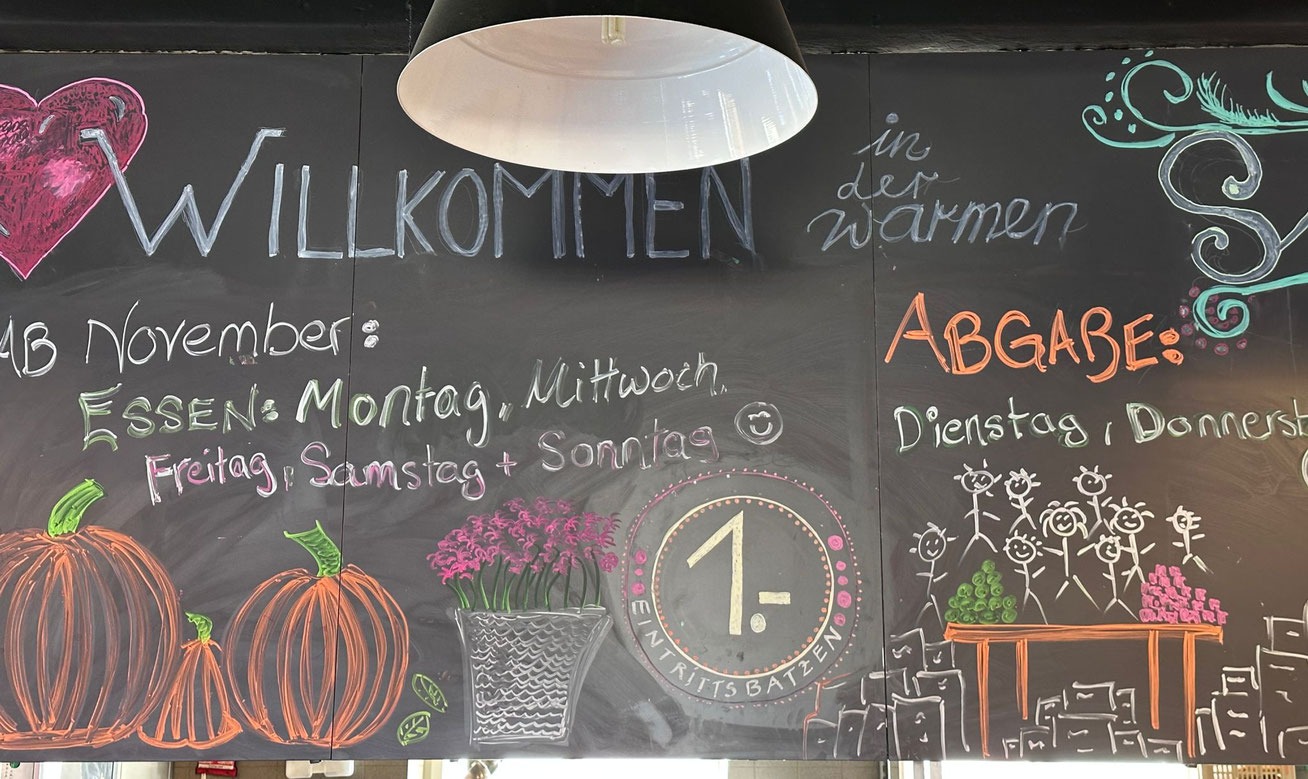 WILLKOMMEN in der warmen
AB November:
ESSEN: Montag, Mittwoch,
Freitag, Samstag + Sonntag
1.-
EINTRITTSBATZEN
ABGABE:
Dienstag, Donnerst